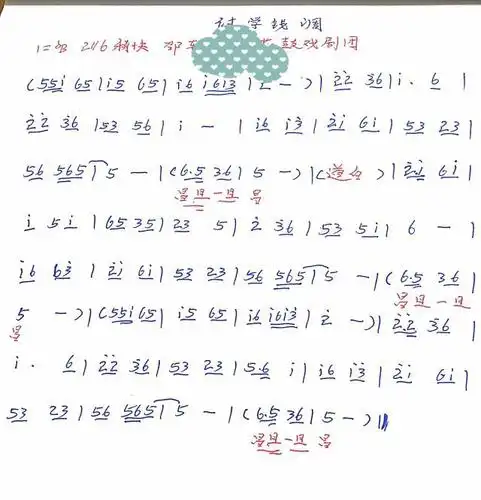 讨学钱 调
1=♭B 2/4 稍快 邵东 花鼓戏剧团
(55i 65|i5 65|i6 i6i3|2 -)|22 36|i. 6|
22 36|53 56|i - |i6 i3|2i 6i|53 23|
56 565|5 - |(6.5 36|5 -)|(道白)|2i 6i|
i 5i|65 35|23 5|2 36|53 5i|6 - |
i6 63|2i 6i|53 23|56 565|5 - |(6.5 36|
5 -)|(55i 65|i5 65|i6 i6i3|2 -)|22 36|
i. 6|22 36|53 23|5.6 i|i6 i3|2i 6i|
53 23|56 565|5 - |(6.5 36|5 -)||